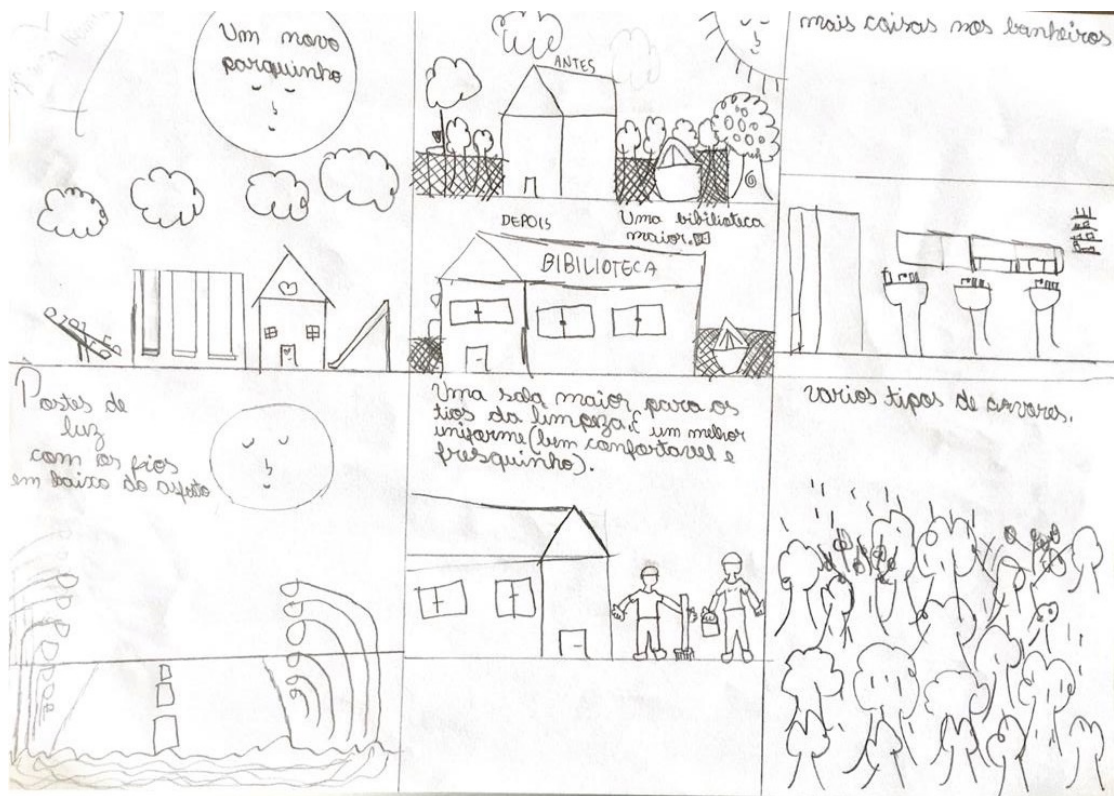 Um novo
parquinho
ANTES
DEPOIS
Uma bibilioteca
maior.
BIBILIOTECA
mais coisas nos banheiros
Postes de
luz
com os fios
em baixo do asfeto
Uma sala maior para os
tios da limpeza, E um melhor
uniforme (bem confortavel e
fresquinho).
varios tipos de arvores.